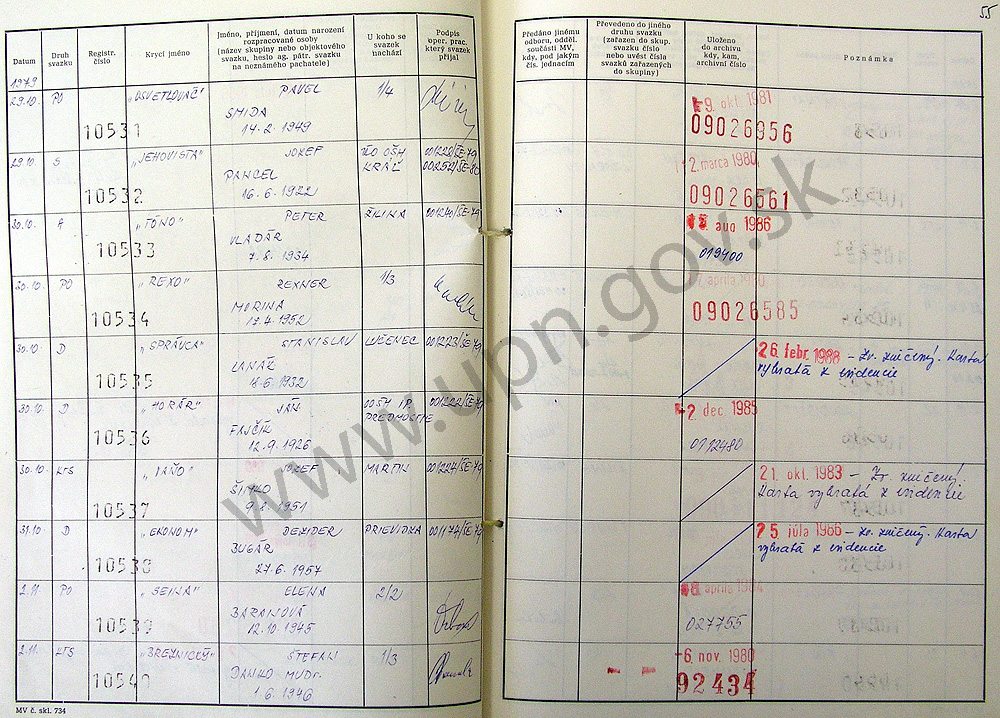 55
Datum
Druh svazku
Registr. číslo
Krycí jméno
Jméno, příjmení, datum narození
rozpracované osoby
(název skupiny nebo objektového
svazku, heslo ag. pátr. svazku
na neznámého pachatele)
U koho se
svazek
nachází
Podpis
oper. prac.
který svazek
přijal
Předáno jinému
odboru, odděl.
součásti MV,
kdy, pod jakým
čís. jednacím
Převedeno do jiného
druhu svazku
(zařazen do skup.
svazku číslo
nebo uvést čísla
svazků zařazených
do skupiny)
Uloženo
do archivu
kdy, kam,
archivní číslo
Poznámka
1979
29.10. PO 10531 "OSVETLOVAČ" PAVEL 1/4
SMIDA
14.2.1949
9. okt. 1981
09026956
29.10. S 10532 "JEHOVISTA" JOZEF
PANCEL KRÁĽ
16.6.1922
12. marca 1980
09026561
30.10. A 10533 "TÓNO" PETER ŽILINA
VLADÁR
7.8.1934
aug 1986
019400
30.10. PO 10534 "REXO" REXNER 1/3
MORINA
17.4.1952
apríla 1980
09026585
30.10. D 10535 "SPRÁVCA" STANISLAV LUČENEC 001223/ŠE-79
18.6.1932
26. febr. 1988 – Zv. zničený. Karta
vybratá z evidencie
30.10. D 10536 "HORÁR" JÁN 001222/ŠE-79
FAJČÍK
12.9.1926
2 dec 1985
30.10. KTS 10537 JOZEF MARTIN 001224/ŠE-79
ŠIMKO
9.8.1951
21. okt. 1983 – Zv. zničený.
Karta vybratá z evidencie
31.10 D 10538 "EKONOM" DEZIDER PRIEVIDZA 001174/ŠE-79
BUGÁR
27.6.1957
25 júla 1986 – Zv. zničený. Karta
vybratá z evidencie
2.11. PO 10539 "SEINA" ELENA 2/2
BARANOVÁ
12.10.1945
027755
2.11. KTS 10540 "BREZNICKÝ" ŠTEFAN 1/3
DANKO MUDr.
1.6.1946
-6. nov. 1980
92434
MV č. skl. 734
www.upn.gov.sk